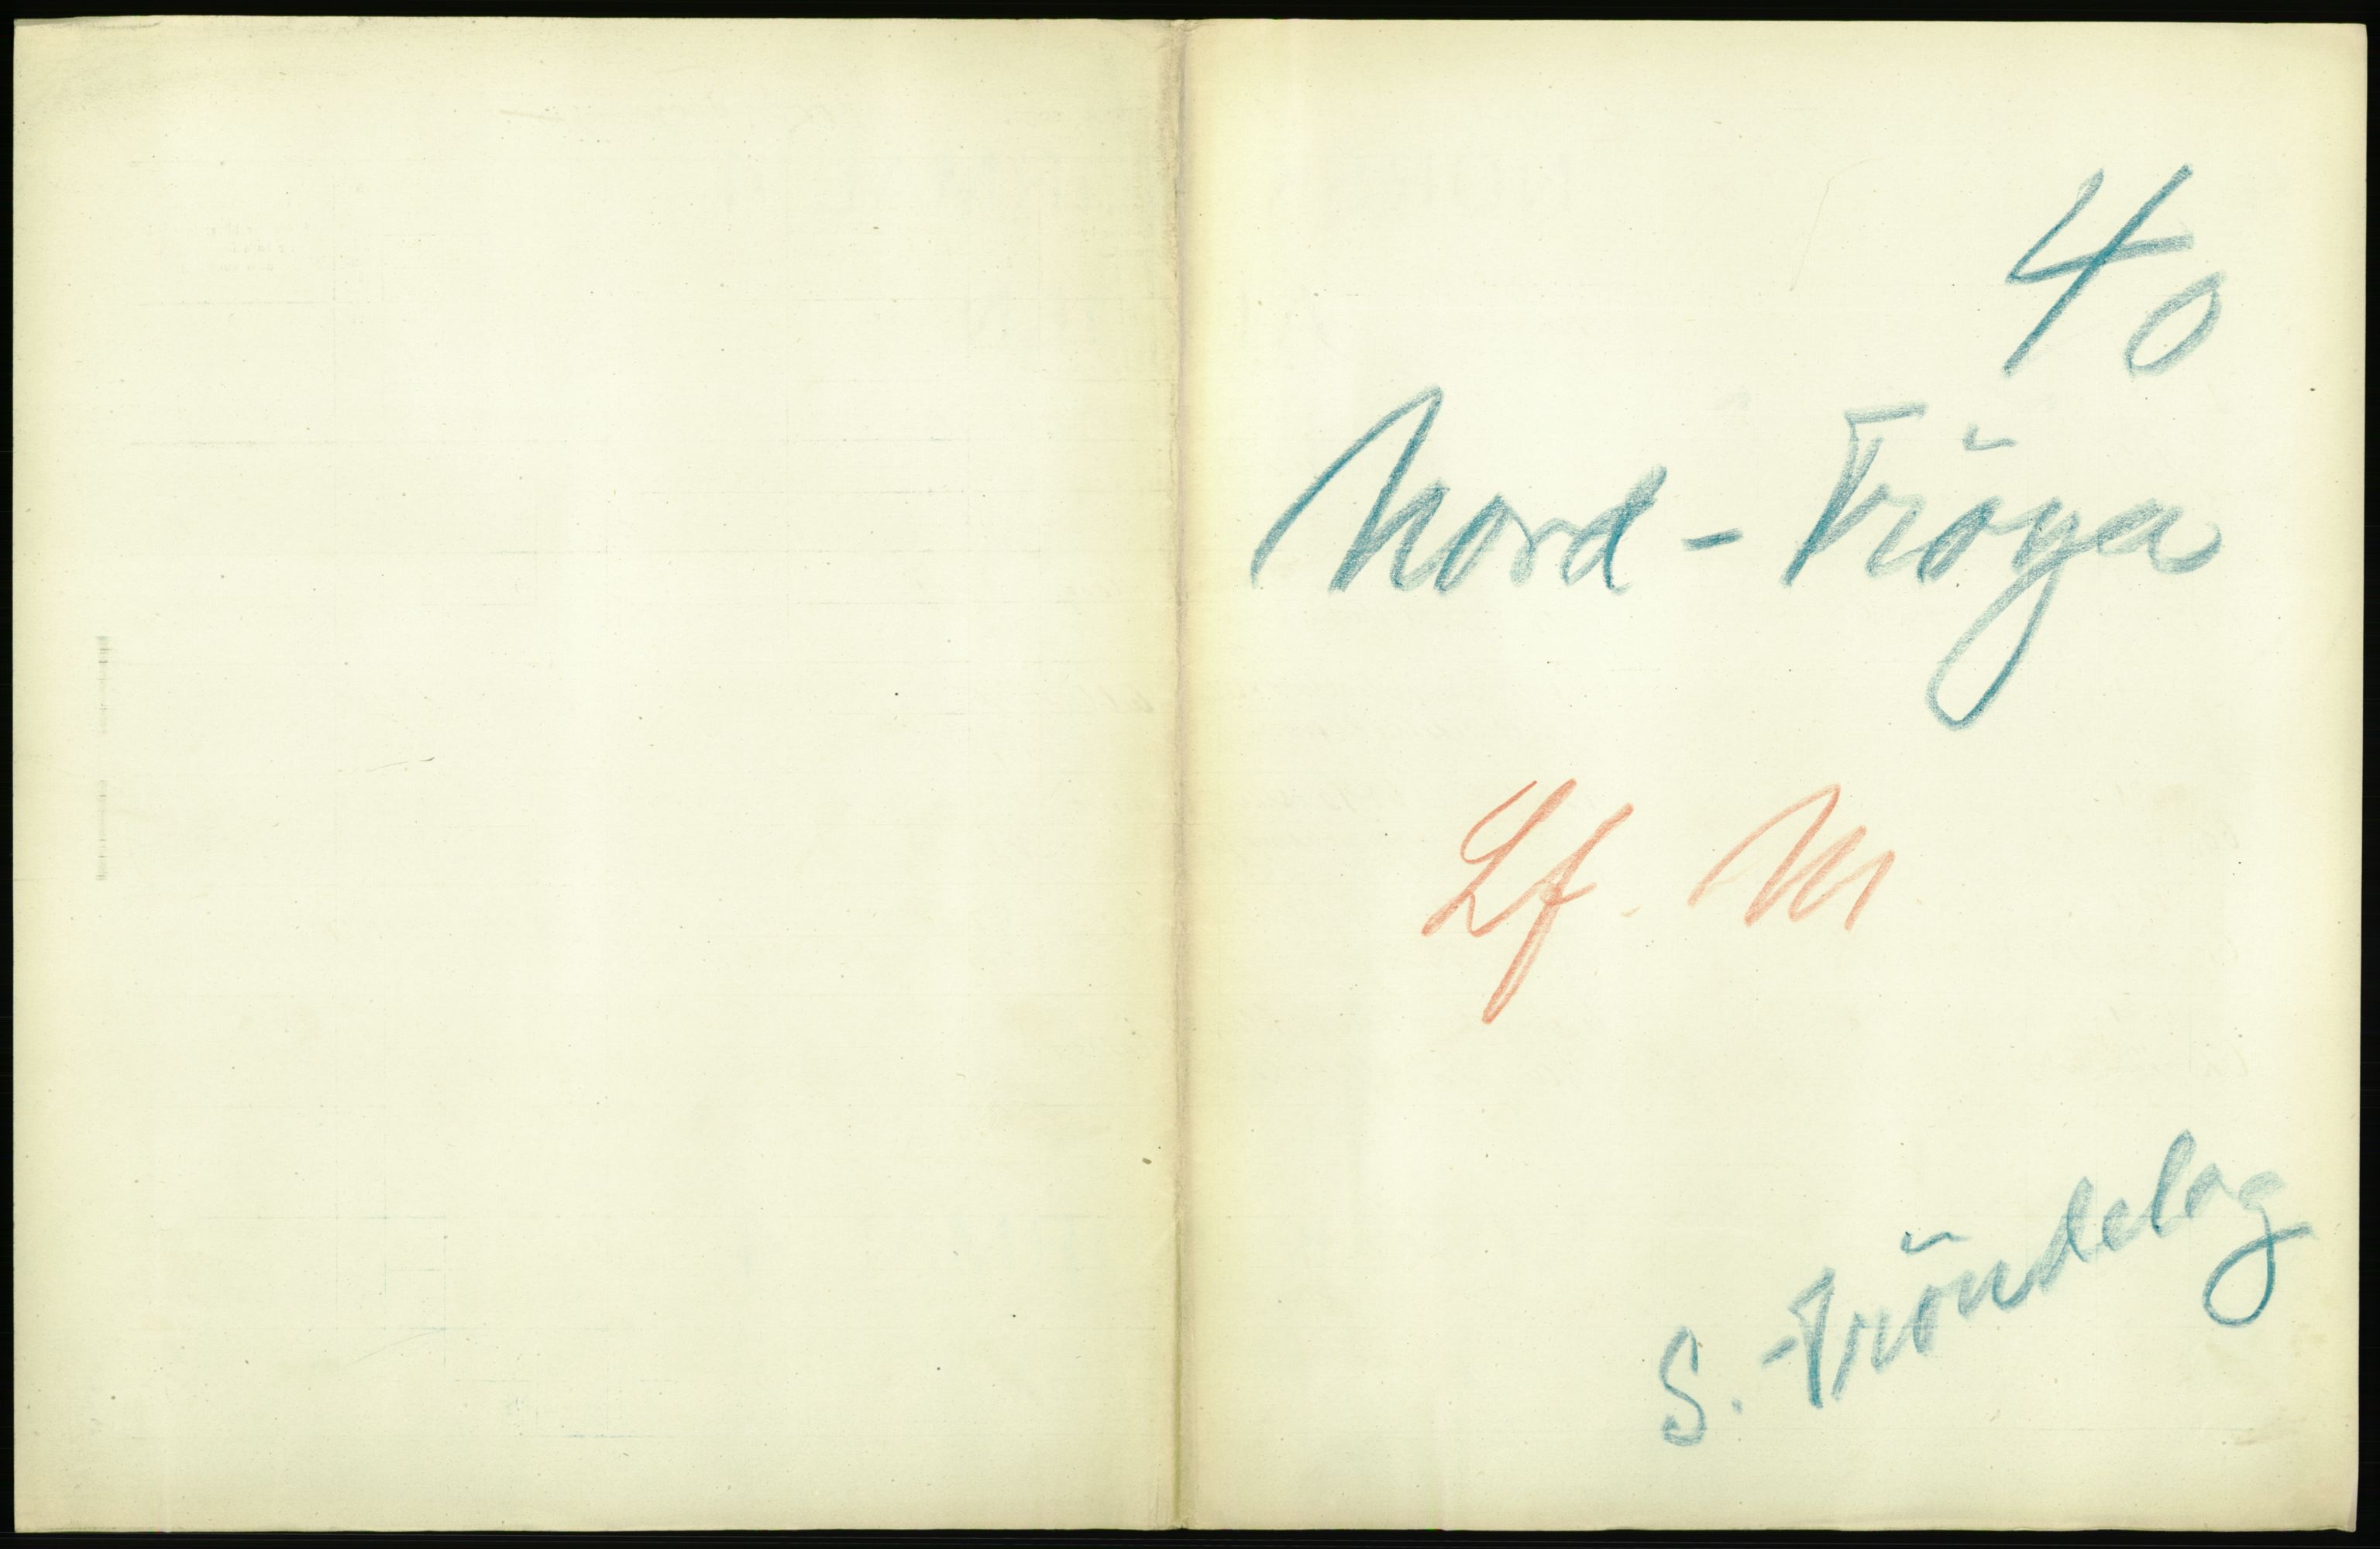 40
Nord - Fröya
Lf. M
S. - Tröndelag